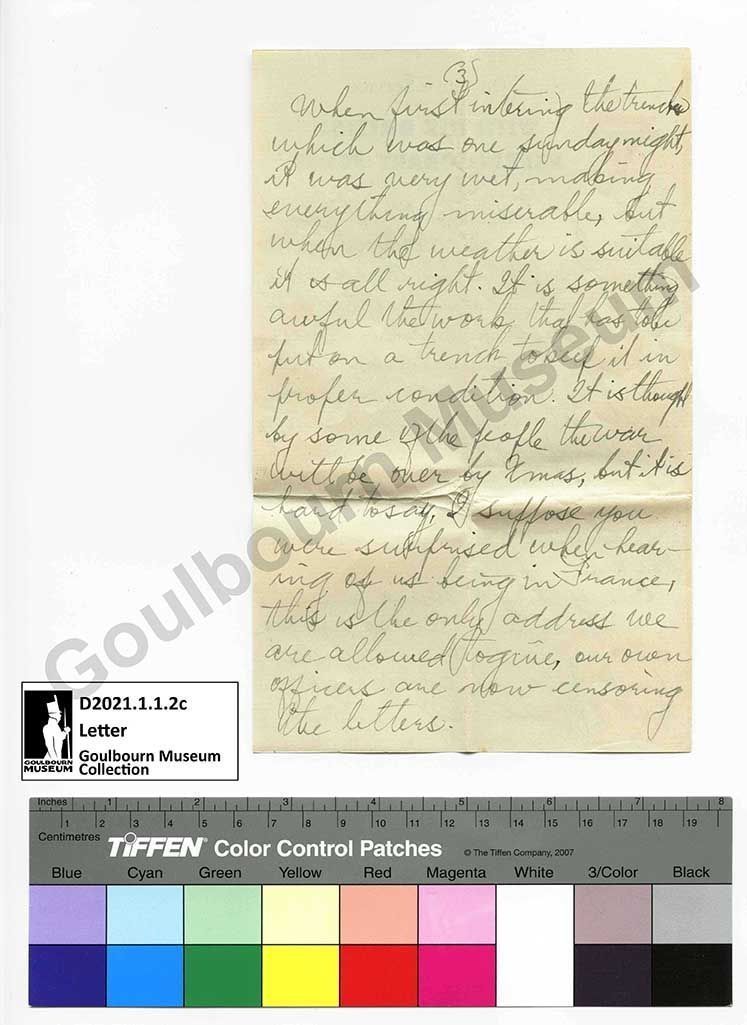 (3)
When first intering the trenches
which was one sunday night,
it was very wet, making
everything miserable, but
when the weather is suitable
it is all right. It is something
awful the work that has to be
put on a trench to keep it in
proper condition. It is thought
by some of the people the war
will be over by Xmas, but it is
hard to say, I suppose you
were surprised when hear-
ing of us being in France,
this is the only address we
are allowed to give, our own
officers are now censoring
the letters.
Goulbourn Museum
D2021.1.1.2c
Letter
Goulbourn Museum
Collection
GOULBOURN
MUSEUM
Inches 1 2 3 4 5 6 7 8
Centimetres 1 2 3 4 5 6 7 8 9 10 11 12 13 14 15 16 17 18 19
TIFFEN® Color Control Patches © The Tiffen Company, 2007
Blue Cyan Green Yellow Red Magenta White 3/Color Black